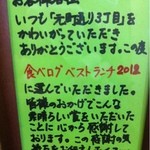 お客様各位
いつも「元町通り3丁目」を
かわいがっていただき
ありがとうございます。この度
食べログベストランチ2012
に選んでいただきました。
皆様のおかげでこんな
素晴らしい賞をいただいた
ことに心から感謝して
おります。この感謝の気